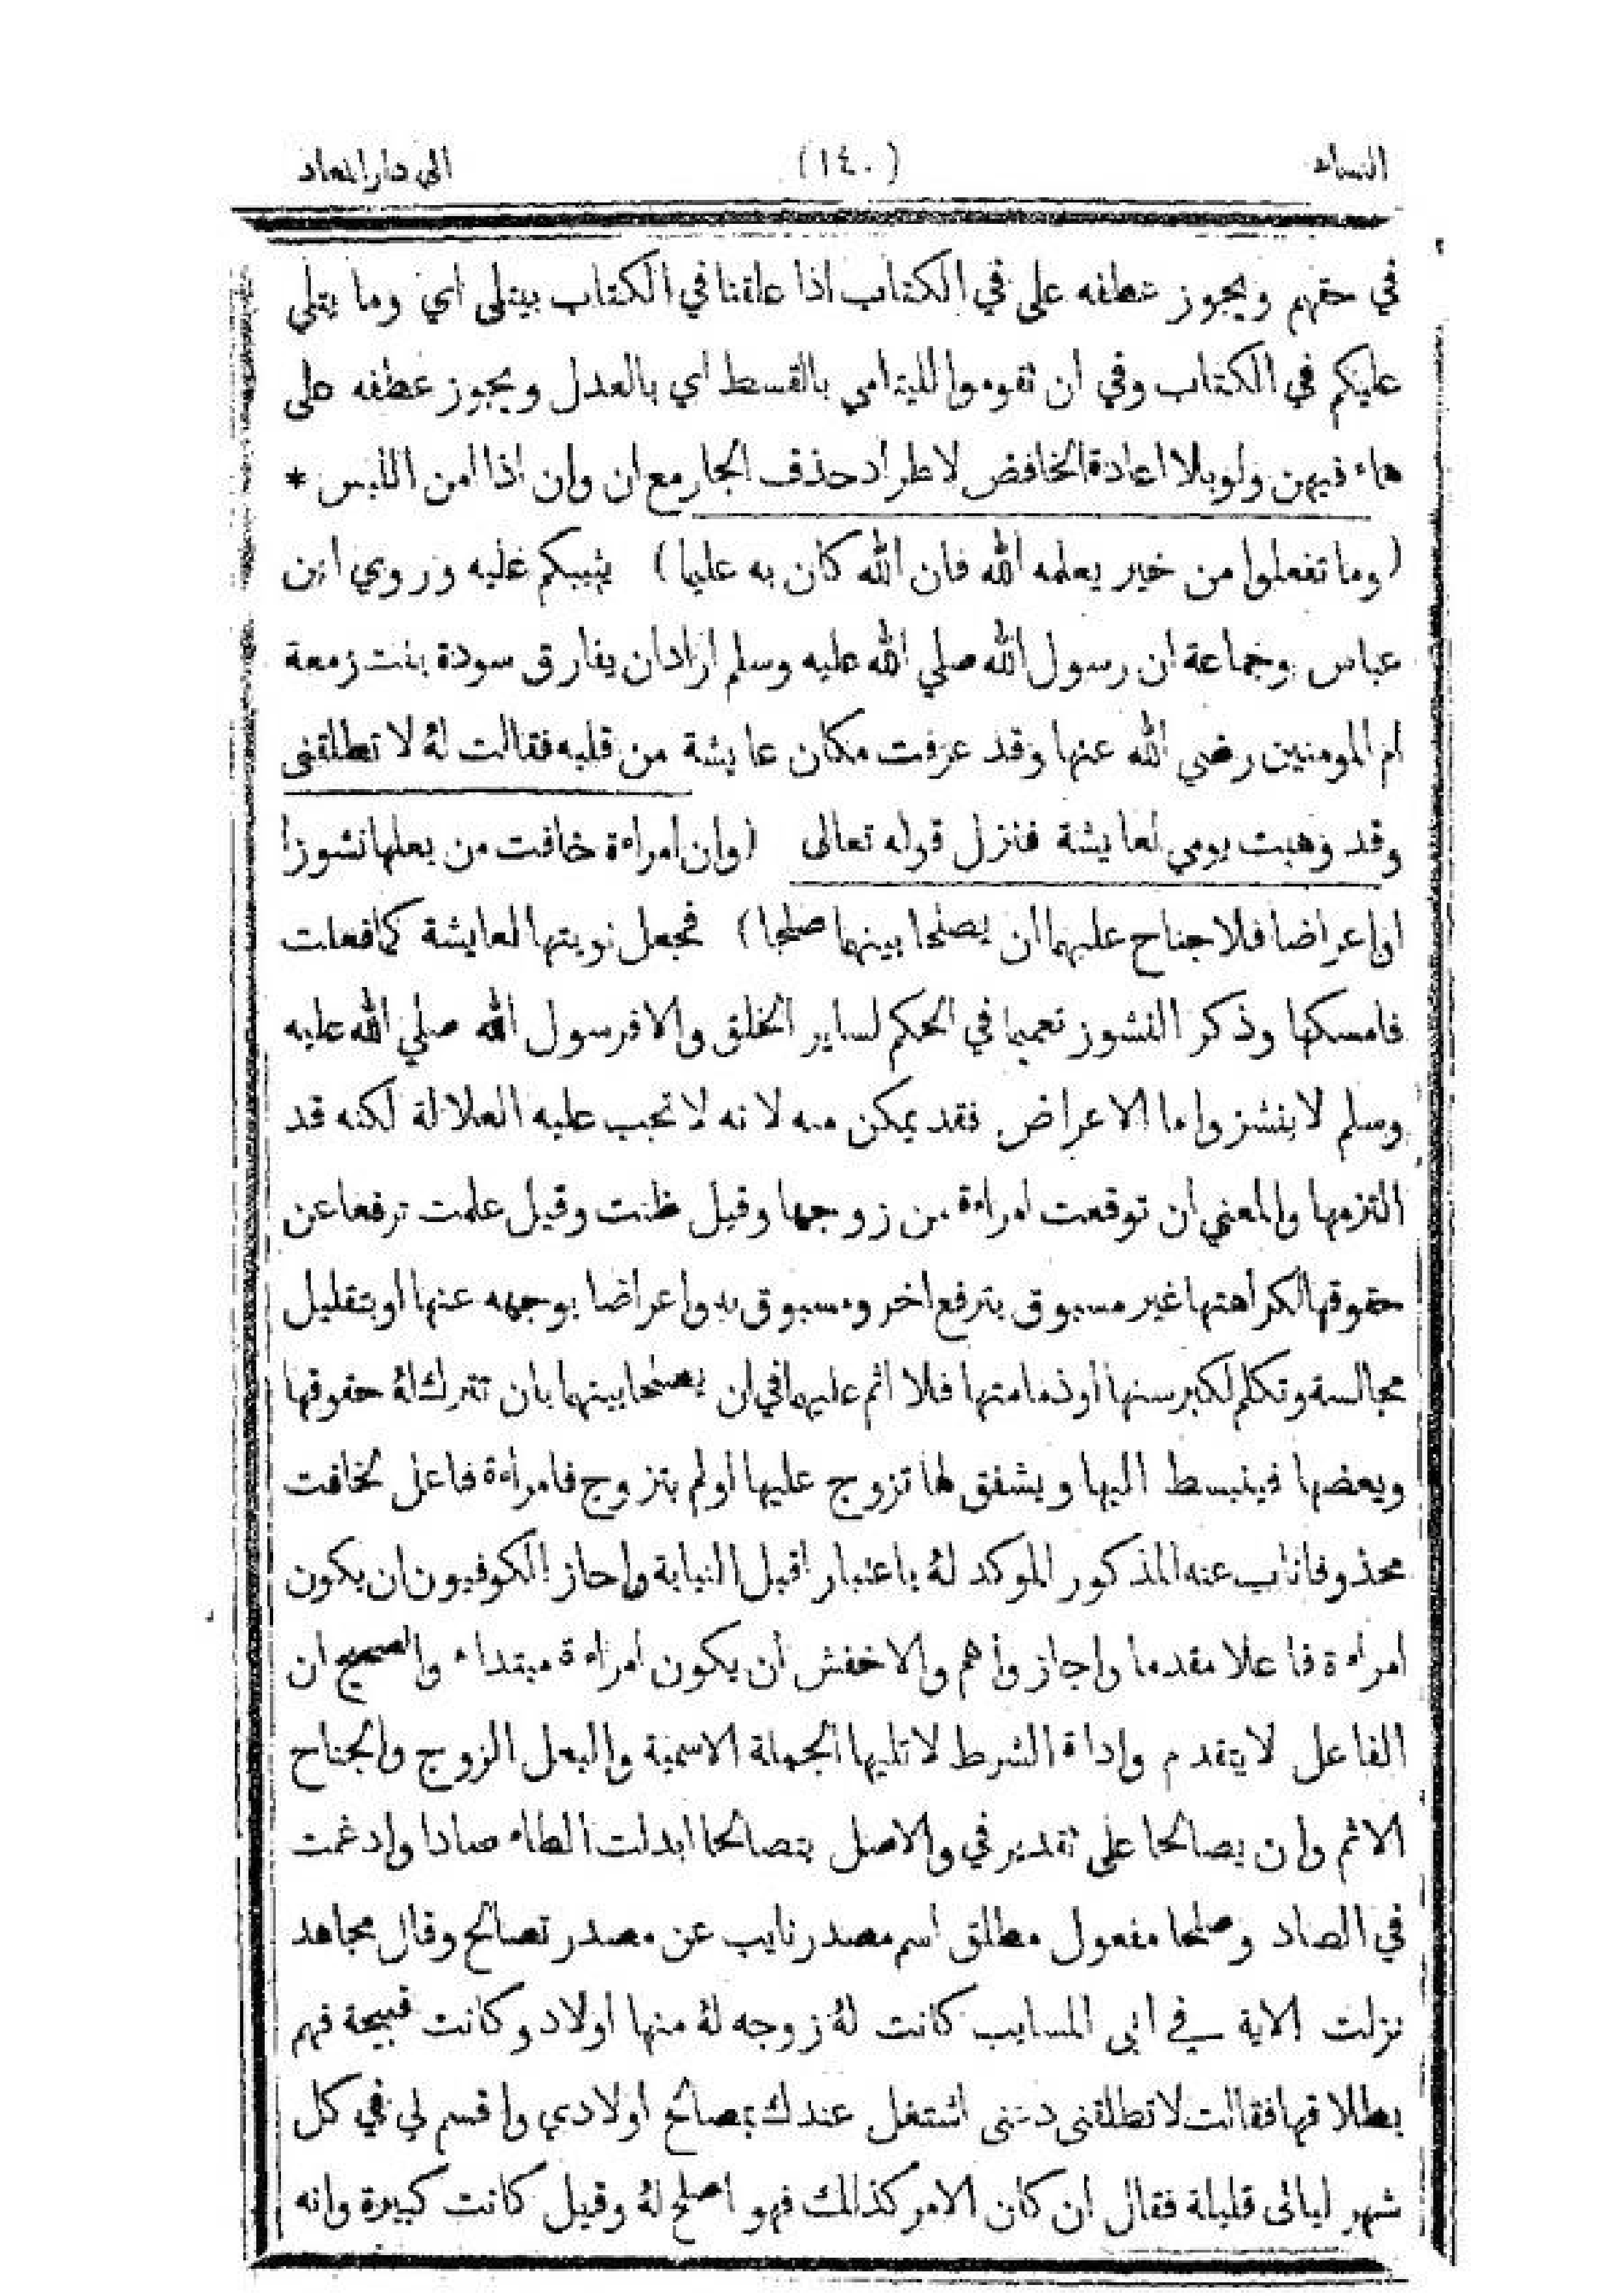 النساء (١٤٠) الى دار المعاد
في حقهم ويجوز عطفه على في الكتاب اذا علقنا في الكتاب بيتلى اي وما يتلي
عليكم في الكتاب وفي ان تقوموا لليتامي بالقسط اي بالعدل ويجوز عطفه على
هاء فيهن ولو بلا اعادة الخافض لاطراد حذف الجار مع ان وان اذا امن اللبس *
(وما تفعلوا من خير يعلمه الله فان الله كان به عليما) يثيبكم عليه وروي ابن
عباس وجماعة ان رسول الله صلي الله عليه وسلم اراد ان يفارق سودة بنت زمعة
ام المومنين رضي الله عنها وقد عرفت مكان عايشة من قلبه فقالت لهُ لا تطلقنى
وقد وهبت يومي لعايشة فنزل قوله تعالى (وان امراءة خافت من بعلها نشوزا
او اعراضا فلا جناح عليهما ان يصلحا بينهما صلحا) فجعل نوبتها لعايشة كما فعلت
فامسكها وذكر النشوز تعميما في الحكم لساير الخلق والا فرسول الله صلي الله عليه
وسلم لا ينشز واما الاعراض فقد يمكن منه لانه لا تجب عليه العدالة لكنه قد
التزمها والمعني ان توقعت امراءة من زوجها وقيل ظنت وقيل علمت ترفعا عن
حقوقها لكراهتها غير مسبوق بترفع اخر ومسبوق به واعراضا بوجهه عنها او بتقليل
مجالسة وتكلم لكبر سنها او ذمامتها فلا اثم عليهما في ان يصلحا بينهما بان تترك لهُ حقوقها
وبعضها فينبسط اليها ويشفق لها تزوج عليها او لم يتزوج فامراءة فاعل لخافت
محذوفا ناب عنه المذكور الموكد لهُ باعتبار اقبل النيابة واجاز الكوفيون ان يكون
امراءة فاعلا مقدما واجاز واهم والاخفش ان يكون امراءة مبتداء والصحيح ان
الفاعل لا يتقدم واداة الشرط لا تليها الجملة الاسمية والبعل الزوج والجناح
الاثم وان يصالحا على تقدير في والاصل يتصالحا ابدلت الطاء صادا وادغمت
في الصاد وصلحا مفعول مطلق اسم مصدر نايب عن مصدر تصالح وقال مجاهد
نزلت الاية في ابى المسايب كانت لهُ زوجه لهُ منها اولاد وكانت قبيحة فهم
بطلاقها فقالت لا تطلقنى دعنى اشتغل عندك بمصالح اولادي واقسم لي في كل
شهر ليالى قليلة فقال ان كان الامر كذالك فهو اصلح لهُ وقيل كانت كبيرة وانه